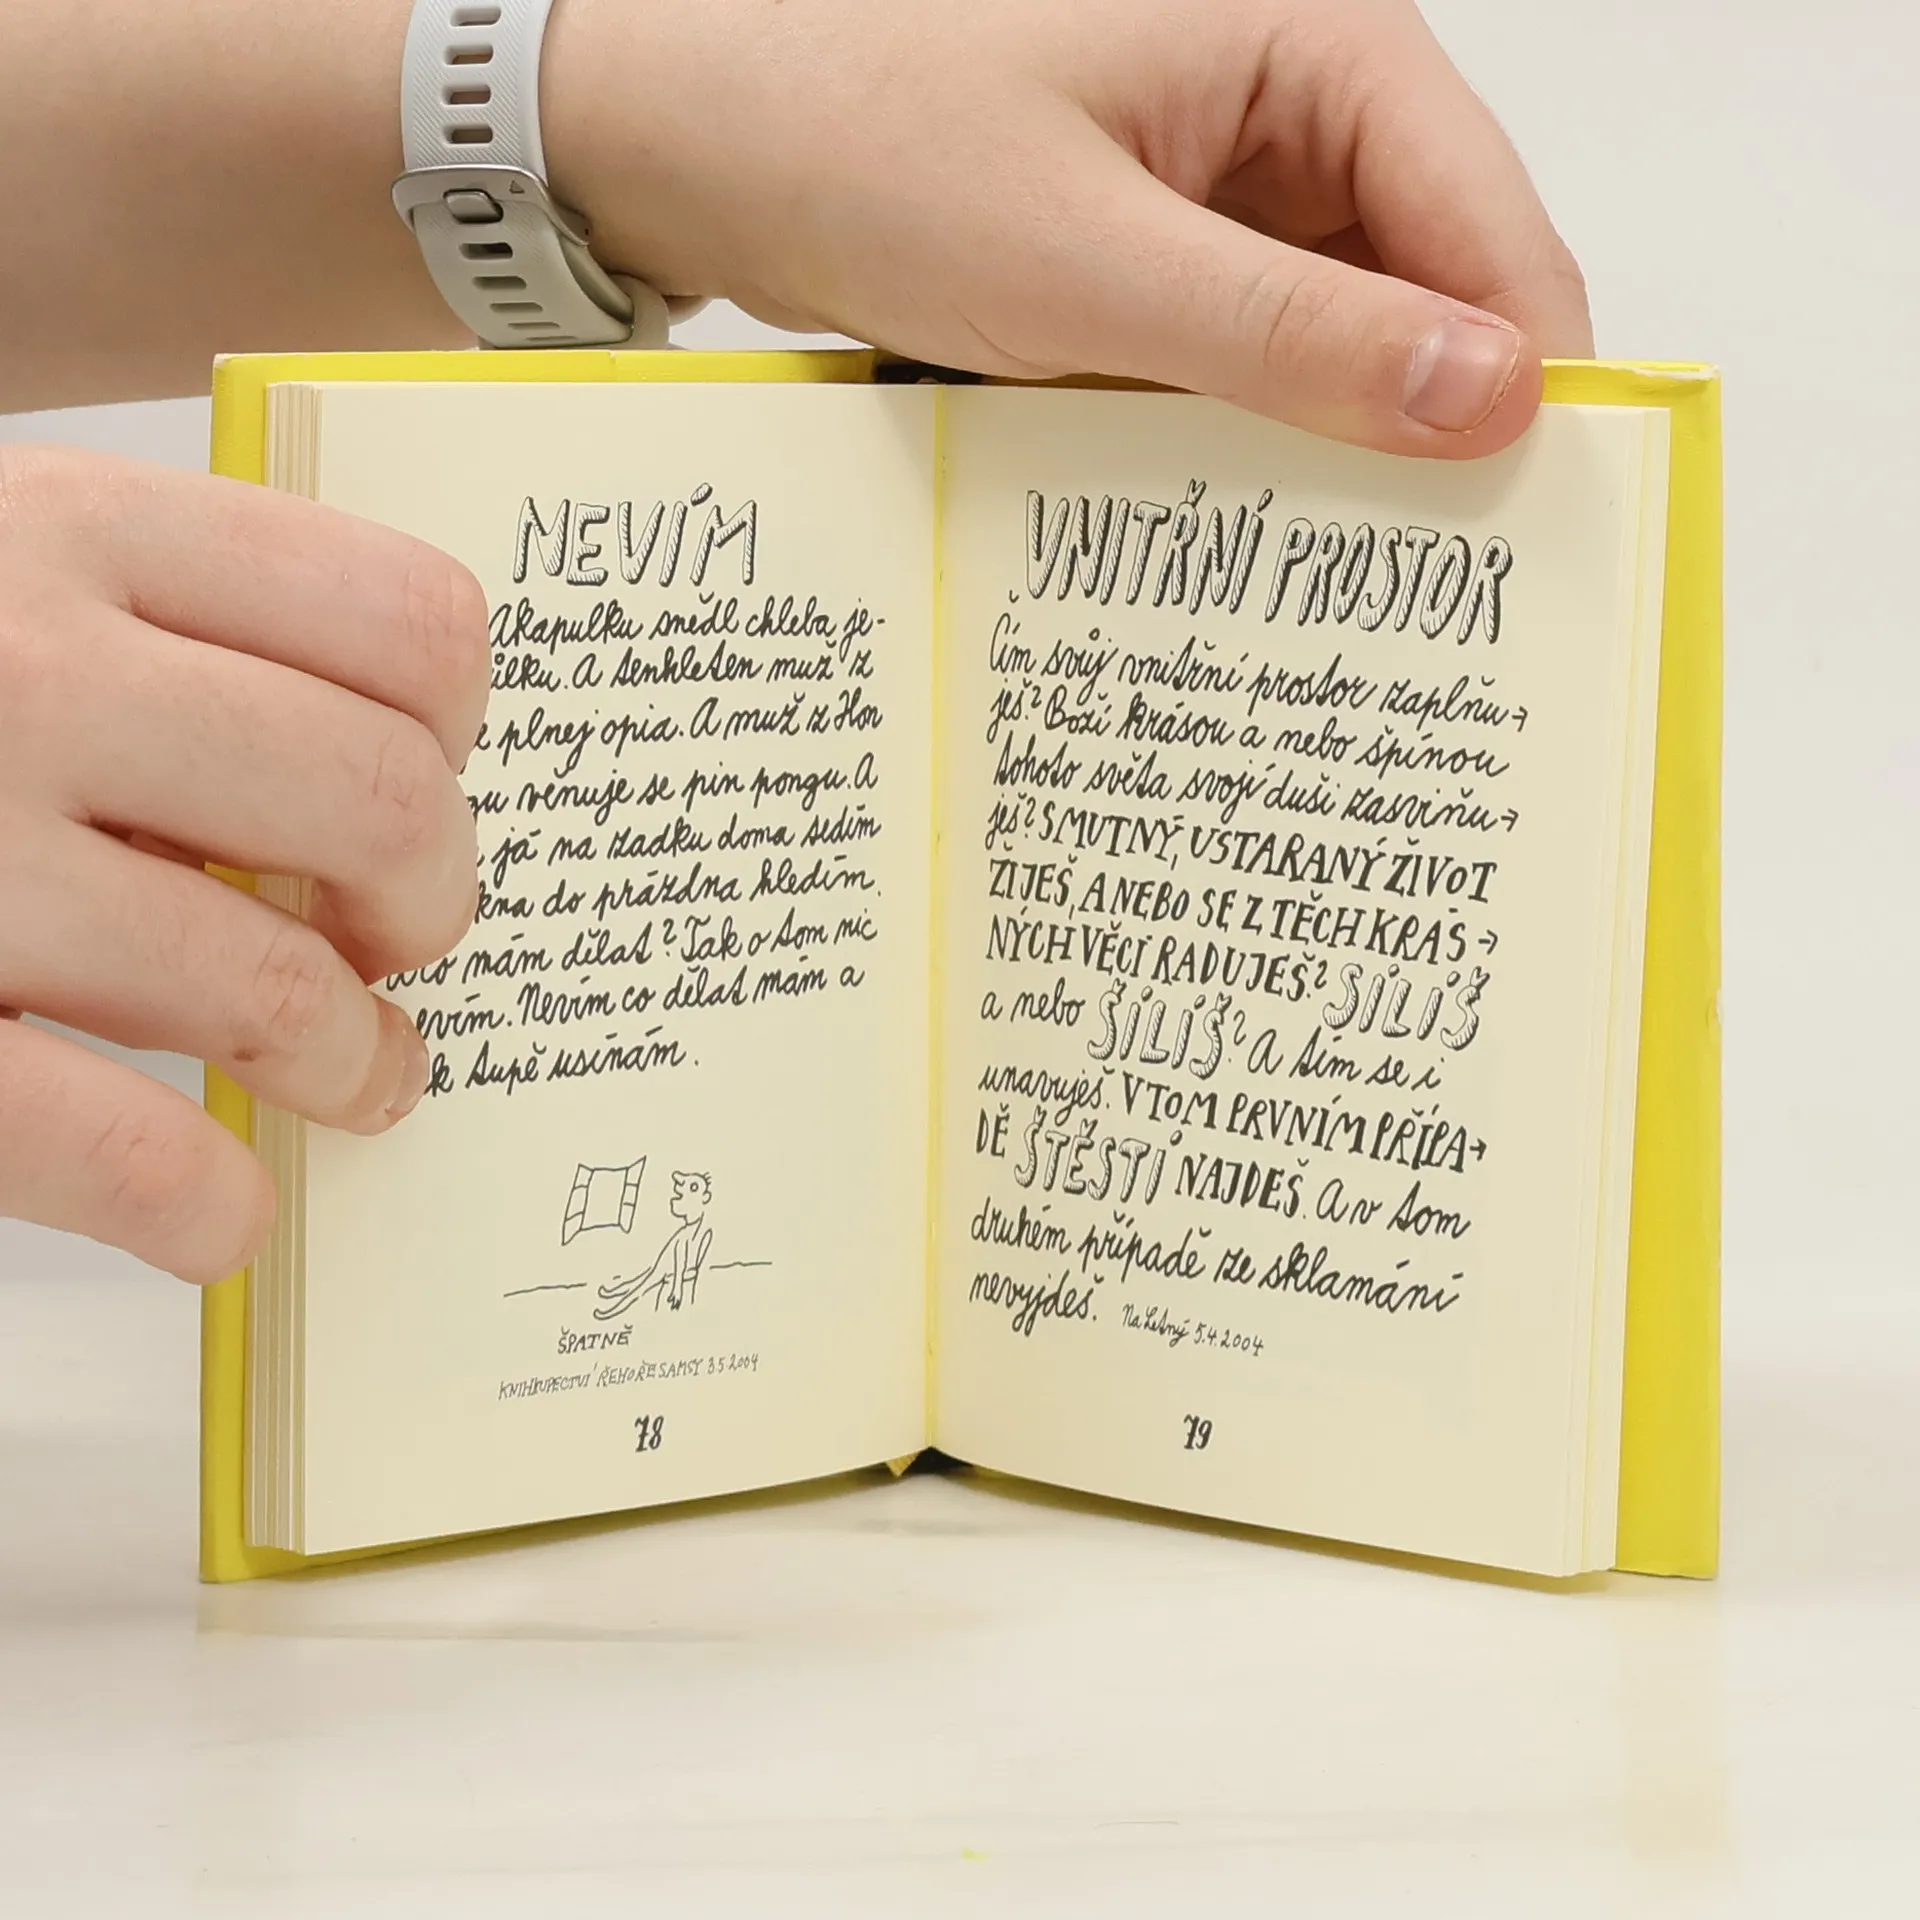 NEVÍM
Akapulku snědl chleba je-
ůlku. A tenhleten muž z
plnej opia. A muž z Hon
gu věnuje se pin pongu. A
já na zadku doma sedím
kna do prázdna hledím.
co mám dělat? Tak o tom nic
evím. Nevím co dělat mám a
k tupě usínám.
ŠPATNĚ
KNIHKUPECTVÍ ŘEHOŘE SAMSY 3.5.2004
78
VNITŘNÍ PROSTOR
Čím svůj vnitřní prostor zaplňu→
ješ? Boží krásou a nebo špínou
tohoto světa svojí duši zasviňu→
ješ? SMUTNÝ, USTARANÝ ŽIVOT
ŽIJEŠ, A NEBO SE Z TĚCH KRÁS→
NÝCH VĚCÍ RADUJEŠ? SÍLÍŠ
a nebo ŠÍLÍŠ? A tím se i
unavuješ. V TOM PRVNÍM PŘÍPA→
DĚ ŠTĚSTÍ NAJDEŠ. A v tom
druhém případě ze sklamání
nevyjdeš. Na Letný 5.4.2004
79